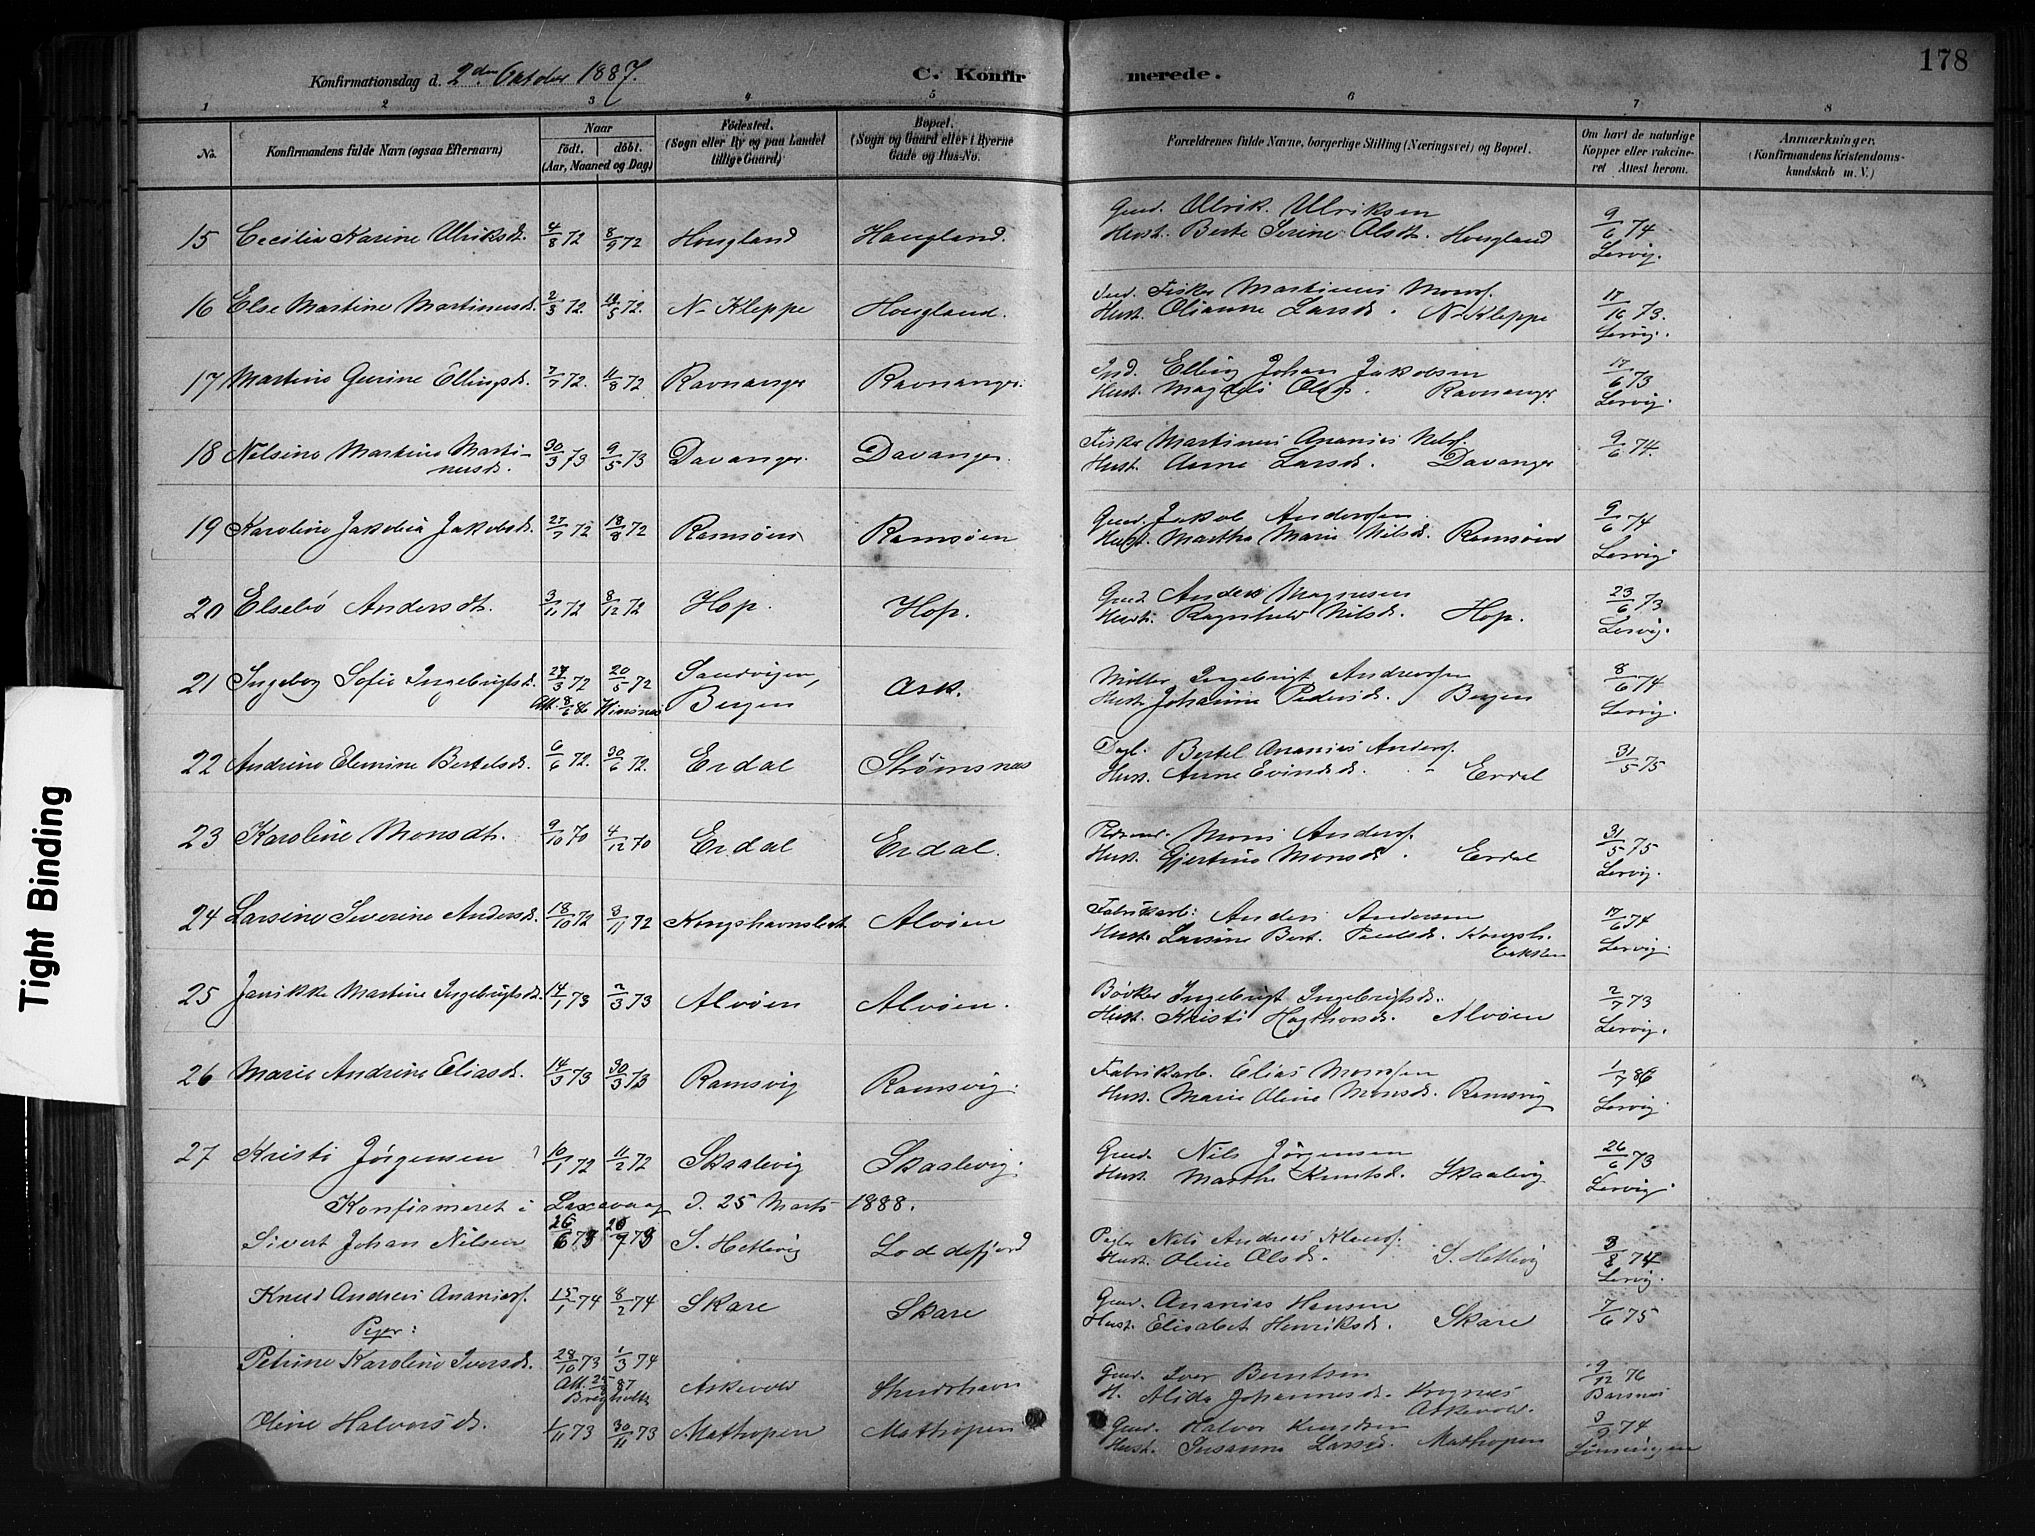 178
Konfirmationsdag d. 2den Oktober 1887.
C. Konfirmerede.
1 2 3 4 5 6 7 8
No.
Konfirmandens fulde Navn (ogsaa Efternavn)
Naar
født. døbt.
(Aar, Maaned og Dag)
Fødested.
(Sogn eller By og paa Landet
tillige Gaard)
Bopæl.
(Sogn og Gaard eller i Byerne
Gade og Hus-No.
Forældrenes fulde Navne, borgerlige Stilling (Næringsvei) og Bopæl.
Om havt de naturlige
Kopper eller vakcine-
ret Attest herom.
Anmærkninger,
(Konfirmandens Kristendoms-
kundskab m. V.)
Gmd. Ulrik Ulriksen
15 Cecilia Karine Ulriksdt. 4/8 72 8/9 72 Hougland Haugland. Hust. Berte Serine Olsdt. Hougland 9/6 74
Lervig.
Fisker Martinus Mons.
16 Else Martine Martinusdt. 2/3 72. 12/5 72. N-Kleppe Hougland. Hust. Olianne Larsd. N-Kleppe 17/10 73.
Lervig.
Ind. Elling Johan Jakobsen
17 Martine Gurine Ellingsdt. 7/7 72. 11/8 72 Ravnanger Ravnanger. Hust. Magdli Olsd. Ravnanger 17/6 73
Lervig.
Fisker Martinus Ananias Nils.
18 Nilsine Martine Marti- 30/3 73 9/5 73 Davanger. Davanger. Hust. Anne Larsd. Davanger 9/6 74.
nusd.
Gmd. Jakob Anderssen
19 Karoline Jakobia Jakobsdt. 27/7 72 18/8 72 Ramsøen Ramsøen Hust. Martha Marie Nilsd. Ramsøen 9/6 74
Lervig.
Gmd. Anders Magnesen
20 Elsebø Andersdt. 3/11 72 8/12 72 Hop. Hop. Hust. Ragnhild Nilsd. Hop. 23/6 73
Lervig.
Møller Ingebrigt Anderssen
21 Ingeborg Sofie Ingebrigtsd. 24/3 72 20/5 72 Sandvigen, Ask. Hust. Johanne Pedersd. Bergen 8/6 74
Att. 8/6 86 Bergen Lervig.
Dagl. Bertel Ananias Anders.
22 Andrine Elemine Bertelsd. 6/6 72. 30/6 72. Erdal Strømsnes Hust. Anne Evindsd. Erdal 31/5 75
Mons Anders.
23 Karoline Monsdt. 9/10 70 4/12 70 Erdal Erdal. Hust. Gjertine Monsd. Erdal 31/5 75
Lervig.
Fabrikarb. Anders Andersen
24 Larsine Severine Andersd. 18/10 72 3/11 72 Kongshavnsledet Alvøen Hust. Larsine Bert. Paulsd. Kongsh. 17/6 74
Lervig
Bødker Ingebrigt Ingebrigts.
25 Janikke Martine Ingebrigtsdt. 14/1 73 2/3 73 Alvøen Alvøen. Hust. Kristi Hagthorsd. Alvøen 2/7 73
Lervig.
Fabrikarb. Elias Monssen
26 Marie Andrine Eliasd. 14/3 73 30/3 73 Ramsvig Ramsvig. Hust. Marie Oline Monsd. Ramsvig 1/7 86
Lervig.
Gmd. Nils Jørgensen
27 Kristi Jørgensen 10/1 72 11/2 72 Skaalevig Skaalevig. Hust. Marthe Knutsd. Skaalevig 26/6 73
Lervig.
Konfirmeret i Laxevaag d. 25 Marts 1888.
Nils Andreas Klaus.
Sivert Johan Nilsen 26/6 73 20/7 73 S. Hetlevig Loddefjord Hust. Oline Olsd. S. Hetlevig 3/8 74
Lervig.
Gmd. Ananias Hansen
Knud Andreas Ananias. 15/1 74 8/2 74 Skare Skare Hust. Elisabet Henriksd. Skare 7/6 75
Piger:
Petrine Karoline Iversd. 28/10 73 1/3 74 Gmd. Iver Berntsen 9/12 76
Askevold H. Alida Johannesd.
Askevold.
Gmd. Halvor Knudsen
Oline Halvorsd. 1/11 73 30/11 73 Mathopen Mathopen Hust. Susanna Larsd. Mathopen 3/9 74
Tight Binding